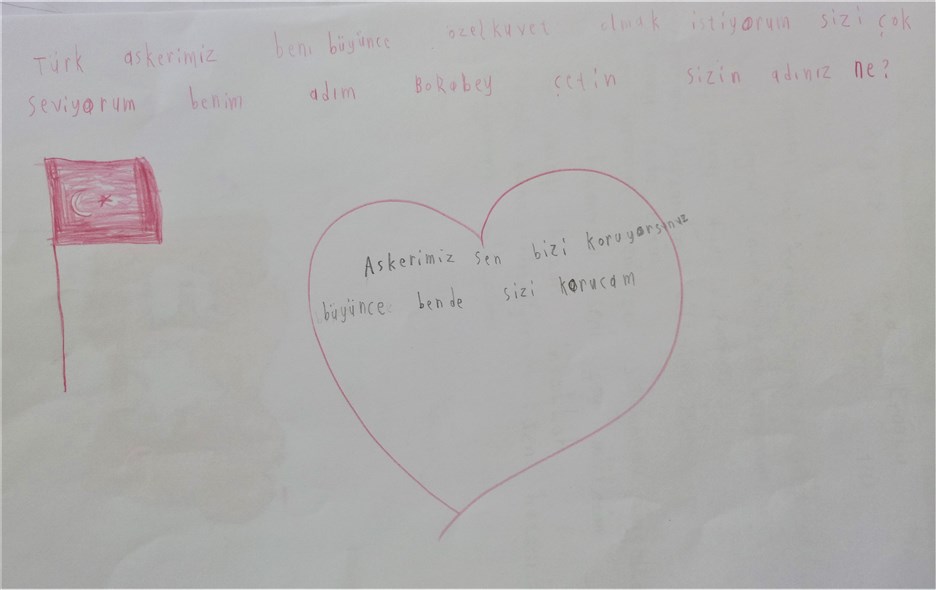 Türk askerimiz beni büyünce özelkuvet olmak istiyorum sizi çok
seviyorum benim adım BoRabey çetin sizin adınız ne?
Askerimiz sen bizi koruyorsunuz
büyünce bende sizi korucam